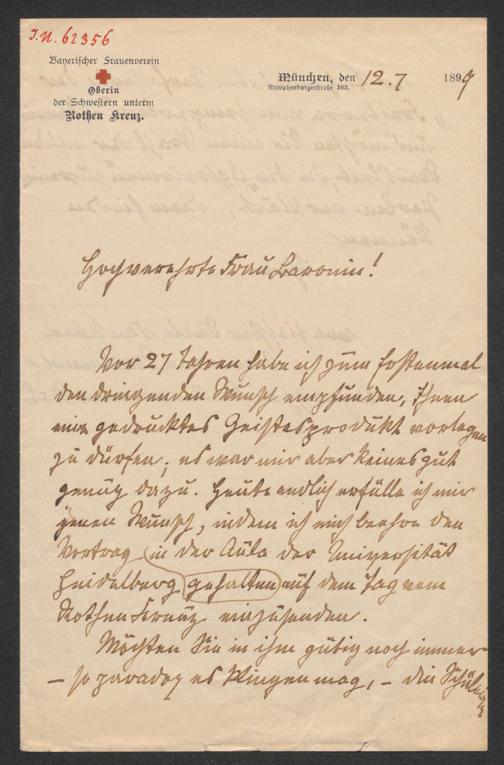 I.N. 62356
Bayerischer Frauenverein
Oberin
der Schwestern unterm
Rothen Kreuz.
München, den 12.7 1899
Nymphenburgerstraße 163.
Hochverehrte Frau Baronin!
Vor 27 Jahren habe ich zum erstenmal
den dringenden Wunsch empfunden, Ihnen
ein gedrucktes Geistesprodukt vorlegen
zu dürfen; es war mir aber keines gut
genug dazu. Heute endlich erfülle ich mir
jenen Wunsch, indem ich mich beehre den
Vortrag in der Aula der Universität
Heidelberg gehalten auf dem Tag vom
Rothen Kreuz einzusenden.
Möchten Sie in ihm gütig noch immer
– so paradox es klingen mag, – die Schülerin